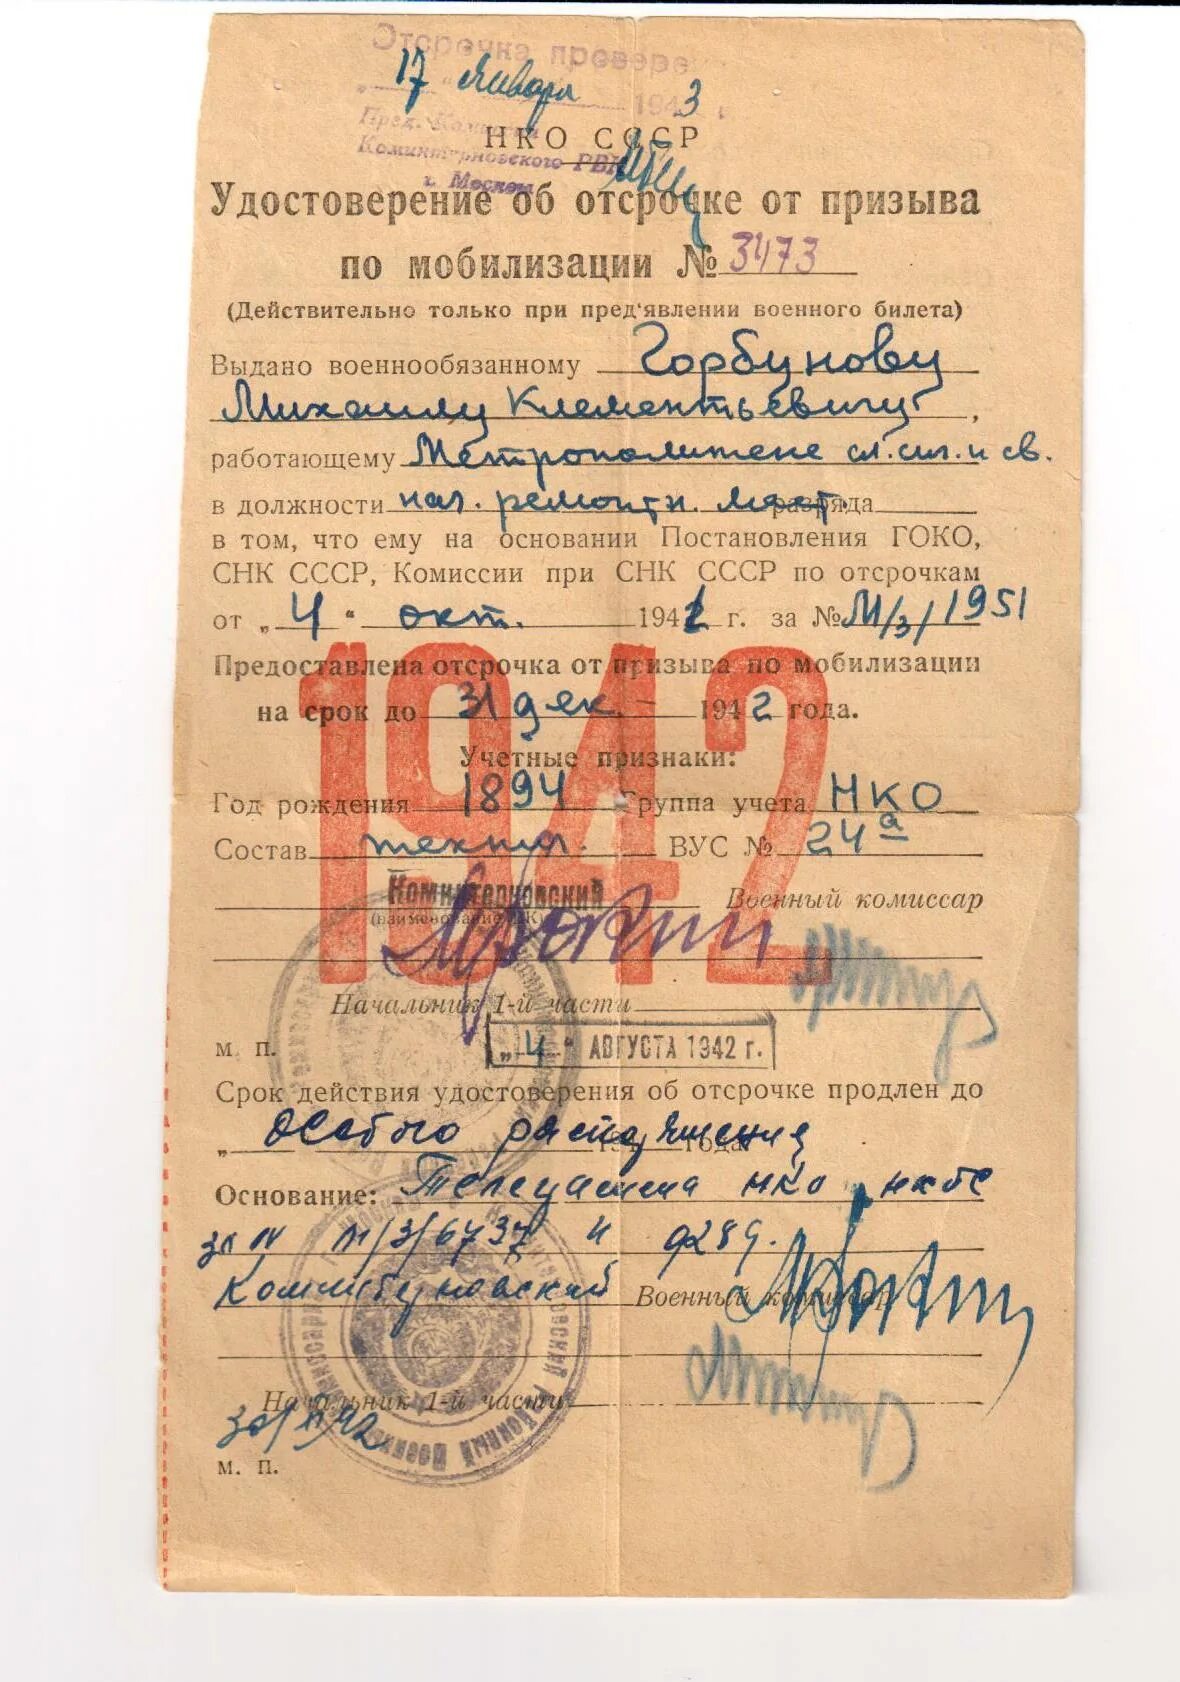 Отсрочка провере
17 января 1943 г.
Пред. Комиссии
НКО СССР
Коминтерновского РВК
г. Москвы
Удостоверение об отсрочке от призыва
по мобилизации № 3473
(Действительно только при пред'явлении военного билета)
Выдано военнообязанному Горбунову
Михаилу Клементьевичу,
работающему Метрополитене сл. сиг. и св.
в должности нач. ремонтн. маст. разряда
в том, что ему на основании Постановления ГОКО,
СНК СССР, Комиссии при СНК СССР по отсрочкам
от „4" окт. 1941 г. за № М/3/1951
1942
Предоставлена отсрочка от призыва по мобилизации
на срок до 31 дек. 1942 года.
Учетные признаки:
Год рождения 1894 Группа учета НКО
Состав технич. ВУС № 24а
Коминтерновский
(наименование РВК)
Военный комиссар
Начальник 1-й части
„4" АВГУСТА 1942 г.
м. п.
Срок действия удостоверения об отсрочке продлен до
„ особого распоряжения 194 года.
Основание: Телеграмма НКО
за № М/3/6737 и 9289.
Коминтерновский Военный комиссар
Начальник 1-й части
м. п.